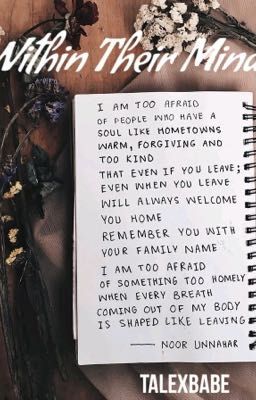 Within Their Mind
I AM TOO AFRAID
OF PEOPLE WHO HAVE A
SOUL LIKE HOMETOWNS
WARM, FORGIVING AND
TOO KIND
THAT EVEN IF YOU LEAVE;
EVEN WHEN YOU LEAVE
WILL ALWAYS WELCOME
YOU HOME
REMEMBER YOU WITH
YOUR FAMILY NAME
I AM TOO AFRAID
OF SOMETHING TOO HOMELY
WHEN EVERY BREATH
COMING OUT OF MY BODY
IS SHAPED LIKE LEAVING
— NOOR UNNAHAR
TALEXBABE